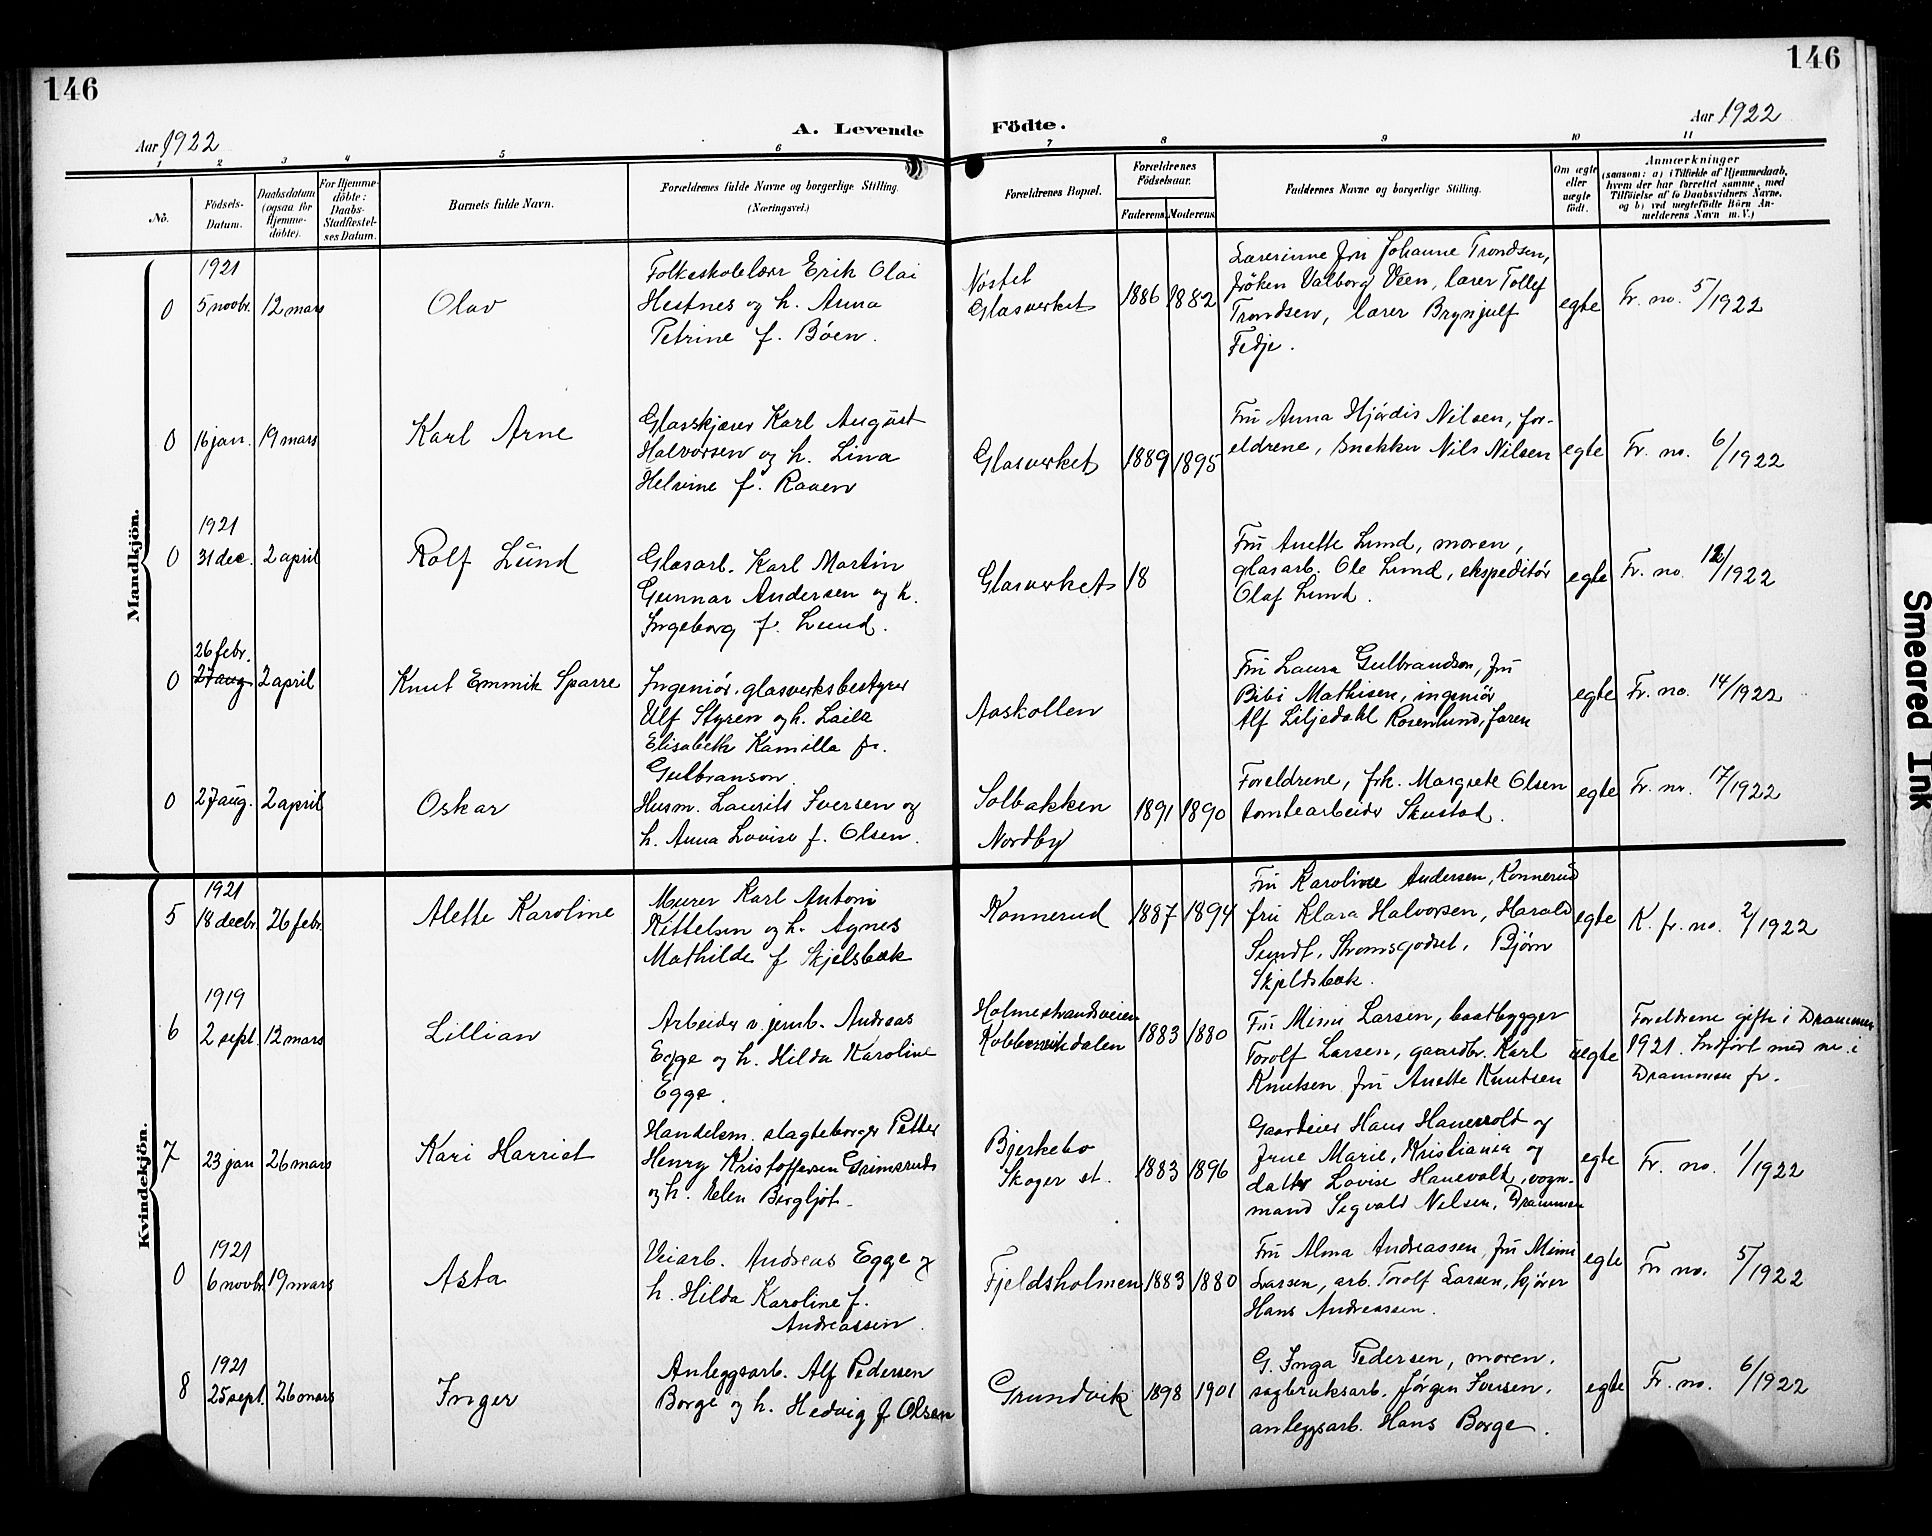 146
146
Aar 1922
A. Levende Födte.
Aar 1922
1 2 3 4 5 6 7 8 9 10 11
No.
Födsels-
Datum.
Daabsdatum
(ogsaa for
Hjemme-
döbte).
For Hjemme-
döbte:
Daabs-
Stadfæstel-
ses Datum.
Barnets fulde Navn.
Forældrenes fulde Navne og borgerlige Stilling.
(Næringsvei.)
Forældrenes Bopæl.
Forældrenes
Födselsaar.
Faderens. Moderens.
Faddernes Navne og borgerlige Stilling.
Om ægte
eller
uægte
født.
Anmærkninger
(saasom: a) i Tilfælde af Hjemmedaab,
hvem der har forrettet samme, med
Tilföielse af to Daabsvidners Navne,
og b) ved uegtefødte Börn An-
melderens Navn m. V.)
Mandkjön.
1921
0 5 novbr. 12 mars
Olav
Folkeskolelærer Erik Olai
Hestnes og h. Anna
Petrine f. Böen.
Nöstet
Glasverket
1886 1882
Lærerinne fru Johanne Trondsen,
fröken Valborg Veen, lærer Tollef
Trondsen, lærer Brynjulf
Fedje.
egte
Fr. no. 5/1922
0 16 jan. 19 mars
Karl Arne
Glasskjærer Karl August
Halvorsen og h. Lina
Helvine f. Raaen
Glasverket
1889 1895
Fru Anna Hjördis Nilsen, for-
eldrene, snekker Nils Nilsen
egte
Fr. no. 6/1922
1921
0 31 dec. 2 april
Rolf Lund
Glasarb. Karl Martin
Gunnar Andersen og h.
Ingeborg f. Lund.
Glasverket
18
Fru Anette Lund, moren,
glasarb. Ole Lund, ekspeditör
Olaf Lund.
egte
Fr. no. 12/1922
26 febr.
0 27 aug 2 april
Knut Emmik Sparre
Ingeniör, glasverksbestyrer
Ulf Styren og h. Laila
Elisabeth Kamilla f.
Gulbranson.
Aaskollen
Fru Laura Gulbrandson, fru
Bibi Mathisen, ingeniör
Alf Liljedahl Rosenlund, faren
egte
Fr. no. 14/1922
0 27 aug. 2 april
Oskar
Husm. Laurits Iversen og
h. Anna Lovise f. Olsen.
Solbakken
Nordby
1891 1890
Foreldrene, frk. Margrete Olsen
tomtearbeider Skustad.
egte
Fr. nr. 17/1922
Kvindekjön.
1921
5 18 decbr. 26 febr.
Alette Karoline
Murer Karl Antoni
Kittelsen og h. Agnes
Mathilde f Skjelsbæk
Konnerud
1887 1894
Fru Karoline Andersen, Konnerud
fru Klara Halvorsen, Harald
Sundt, Strømsgodset, Bjørn
Skjeldsbæk.
egte
K. fr. no. 2/1922
1919
6 2 sept. 12 mars
Lillian
Arbeider v. jernb. Andreas
Egge og h. Hilda Karoline
Egge.
Holmestrandsveien
Kobbervikdalen
1883 1880
Fru Mimi Larsen, baatbygger
Torolf Larsen, gaardbr. Karl
Knutsen fru Anette Knutsen
uegte
Foreldrene gifte i Drammen
1921. Indført med nr. i
Drammen fr.
7 23 jan 26 mars
Kari Harriet
Handelsm. slagteborger Petter
Henry Kristoffersen Grimsrud
og h. Elen Bergljot.
Bjerkebo
Skoger st.
1883 1896
Gaardeier Hans Hanevold og
frue Marie, Kristiania og
datter Lovise Hanevold, vogn-
mand Sigvald Nilsen, Drammen
egte
Fr. no. 1/1922
1921
0 6 novbr. 19 mars
Asta
Veiarb. Andreas Egge og
h. Hilda Karoline f.
Andreassen.
Fjeldsholmen
1883 1880
Fru Alma Andreassen, fru Mimi
Larsen, arb. Torolf Larsen, kjörer
Hans Andreassen.
egte
Fr no. 5/1922
1921
8 25 sept. 26 mars
Inger
Anleggsarb. Alf Pedersen
Borge og h. Hedvig f Olsen
Grundvik
1898 1901
G. Inga Pedersen, moren,
sagbruksarb. Jörgen Iversen,
anleggsarb. Hans Borge.
egte
Fr. no. 6/1922
Smeared Ink